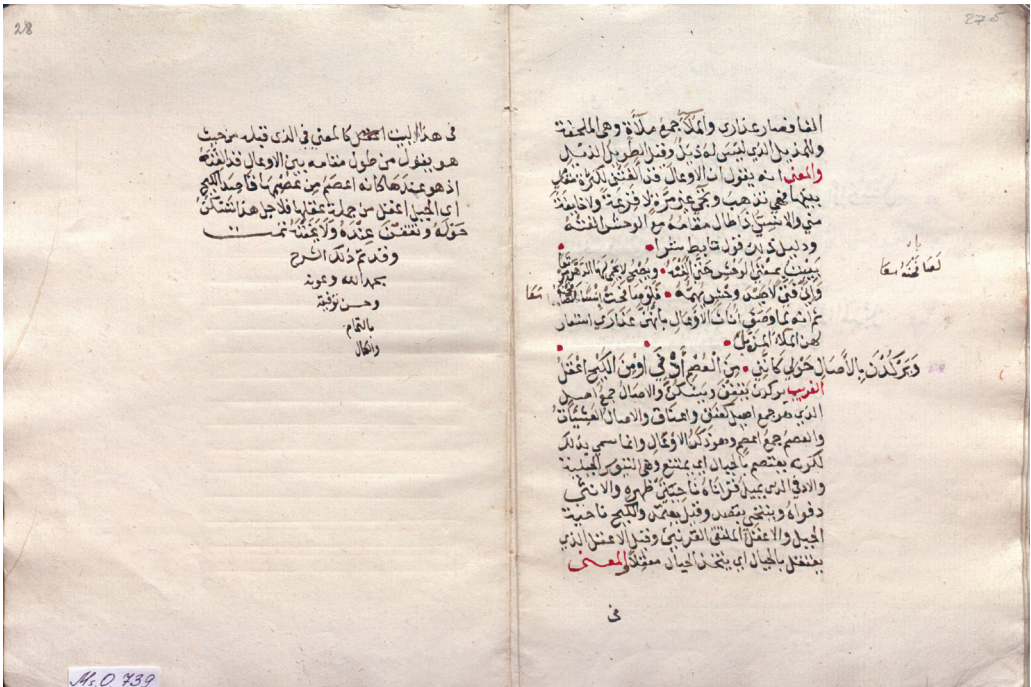 275
والمذيل الذي ليس له ذيل وقيل الطويل الذيل
والمعنى انه يقول ان الاوعال قد الفتني لكثرة مقامي
بينها فهي تذهب وتجي غير مرة لا فزعة ولا خايفة
مني ولا اذا طال مقامه مع الوحش الفته
ودليل ذلك قول تابط شرا
يبيت بمغنى الوحش حتى الفنه لها الدهر مرتعا
فتى لا صيد وحش يهمه فلو صافحت انسا معا
ثم انه لما وصف اناث الاوعال بانهن عذارى استعار
لهن الملاء المذيل
ويركدن بالآصال حولي كانني من العصم ادفى الكيح اعقل
الغريب يركدن يقفن ويسكن والاصال جمع اصيل
الذي هو جمع اصيل كعنق واعناق والاصال العشيات
والعصم جمع اعصم وهو ذكر الاوعال وانما سمي بذلك
لكونه يعتصم بالجبال اي يمتنع وهى التيوس الجبلية
والادفى الذي يميل قرناه ناحيتي ظهره والانثى
دفواء وينتحى يقصد وقيل يعتمد والكيح ناحية
الجبل والاعقل الملتقى القرنين وقيل الاعقل الذي
يعتقل بالجبال اي يتخذ الجبال معقلا والمعنى
فى
28
فى هذا البيت كالمعنى في الذي قبله من حيث
هو يقول من طول مقامه بين الاوعال قد الفنه
اذ هو عندها كانه اعصم من عصمها قاصد الكيح
اي الجبل اعقل من جملة عقلها فلاجل هذا تسكن
حوله وتقفن عنده ولا يمقته تمت
وقد تم ذلك الشرح
بحمد الله وعونه
وحسن توفيقه
بالتمام
والكمال
Ms. O. 739